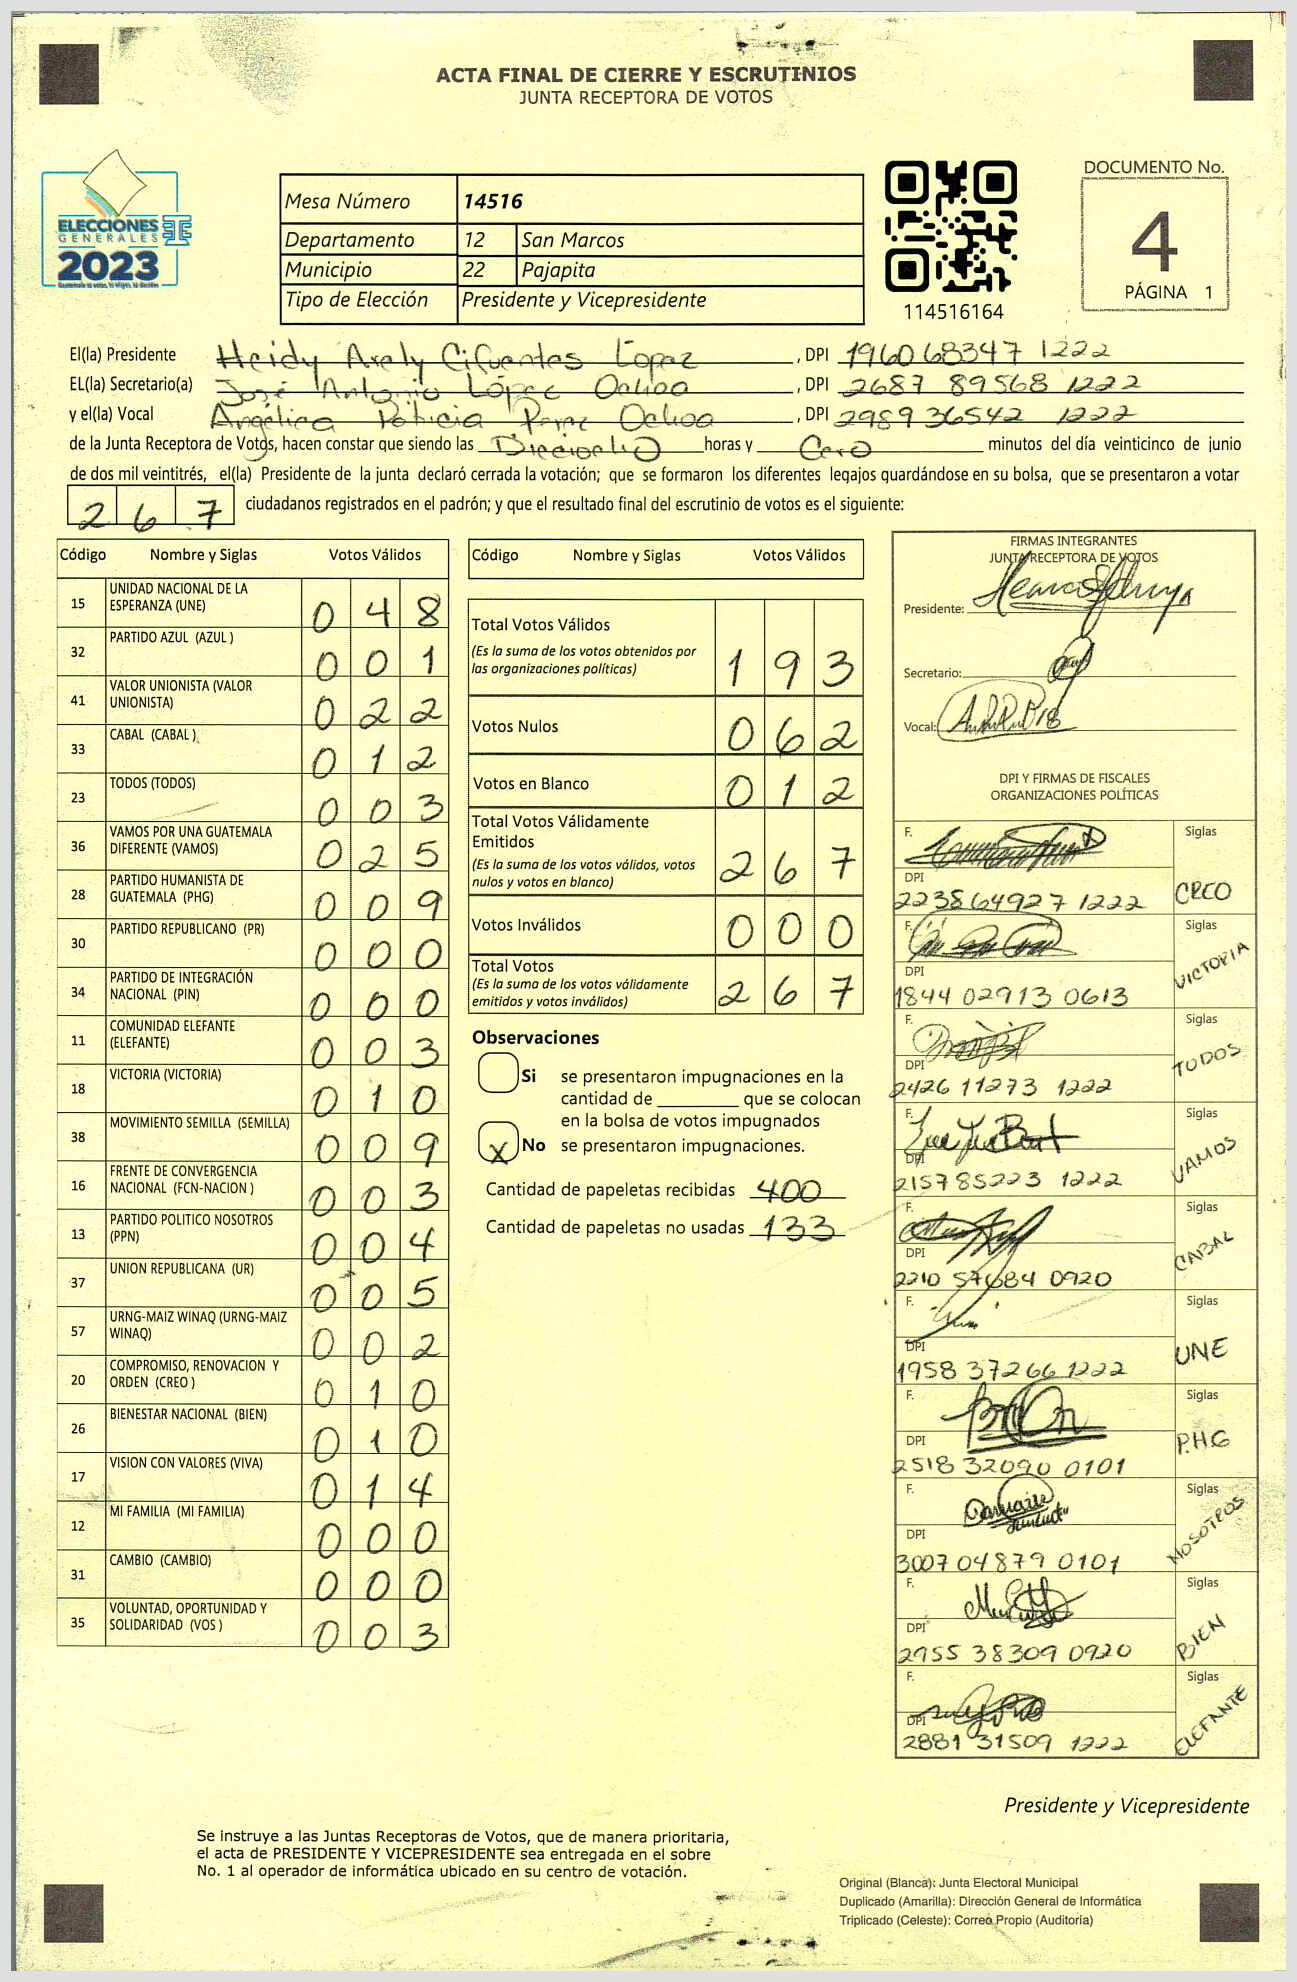 ACTA FINAL DE CIERRE Y ESCRUTINIOS
JUNTA RECEPTORA DE VOTOS
ELECCIONES
GENERALES
2023
Mesa Número 14516
Departamento 12 San Marcos
Municipio 22 Pajapita
Tipo de Elección Presidente y Vicepresidente
114516164
DOCUMENTO No.
4
PÁGINA 1
El(la) Presidente Heidy Arely Cifuentes Lopez , DPI 196068347 1222
EL(la) Secretario(a) José Antonio López Ochoa , DPI 2687 89568 1222
y el(la) Vocal Angélica Patricia Perez Ochoa , DPI 2989 36542 1222
de la Junta Receptora de Votos, hacen constar que siendo las Dieciocho horas y Cero minutos del día veinticinco de junio
de dos mil veintitrés, el(la) Presidente de la junta declaró cerrada la votación; que se formaron los diferentes legajos guardándose en su bolsa, que se presentaron a votar
267 ciudadanos registrados en el padrón; y que el resultado final del escrutinio de votos es el siguiente:
Código Nombre y Siglas Votos Válidos
15 UNIDAD NACIONAL DE LA ESPERANZA (UNE) 048
32 PARTIDO AZUL (AZUL ) 001
41 VALOR UNIONISTA (VALOR UNIONISTA) 022
33 CABAL (CABAL ) 012
23 TODOS (TODOS) 003
36 VAMOS POR UNA GUATEMALA DIFERENTE (VAMOS) 025
28 PARTIDO HUMANISTA DE GUATEMALA (PHG) 009
30 PARTIDO REPUBLICANO (PR) 000
34 PARTIDO DE INTEGRACIÓN NACIONAL (PIN) 000
11 COMUNIDAD ELEFANTE (ELEFANTE) 003
18 VICTORIA (VICTORIA) 010
38 MOVIMIENTO SEMILLA (SEMILLA) 009
16 FRENTE DE CONVERGENCIA NACIONAL (FCN-NACION ) 003
13 PARTIDO POLITICO NOSOTROS (PPN) 004
37 UNION REPUBLICANA (UR) 005
57 URNG-MAIZ WINAQ (URNG-MAIZ WINAQ) 002
20 COMPROMISO, RENOVACION Y ORDEN (CREO ) 010
26 BIENESTAR NACIONAL (BIEN) 010
17 VISION CON VALORES (VIVA) 014
12 MI FAMILIA (MI FAMILIA) 000
31 CAMBIO (CAMBIO) 000
35 VOLUNTAD, OPORTUNIDAD Y SOLIDARIDAD (VOS ) 003
Código Nombre y Siglas Votos Válidos
Total Votos Válidos
(Es la suma de los votos obtenidos por
las organizaciones políticas) 193
Votos Nulos 062
Votos en Blanco 012
Total Votos Válidamente
Emitidos
(Es la suma de los votos válidos, votos
nulos y votos en blanco) 267
Votos Inválidos 000
Total Votos
(Es la suma de los votos válidamente
emitidos y votos inválidos) 267
Observaciones
Si se presentaron impugnaciones en la
cantidad de ________ que se colocan
en la bolsa de votos impugnados
X No se presentaron impugnaciones.
Cantidad de papeletas recibidas 400
Cantidad de papeletas no usadas 133
FIRMAS INTEGRANTES
JUNTA RECEPTORA DE VOTOS
Presidente:
Secretario:
Vocal:
DPI Y FIRMAS DE FISCALES
ORGANIZACIONES POLÍTICAS
F. Siglas
DPI
2238 64927 1222 CREO
F. Siglas
DPI
1844 02913 0613 VICTORIA
F. Siglas
DPI
2426 11273 1222 TODOS
F. Siglas
DPI
2157 85223 1222 VAMOS
F. Siglas
DPI
2210 57684 0920 CABAL
F. Siglas
DPI
1958 37266 1222 UNE
F. Siglas
DPI
2518 32090 0101 P.H.G
F. Siglas
DPI
3007 04879 0101 NOSOTROS
F. Siglas
DPI
2955 38309 0920 BIEN
F. Siglas
DPI
2881 31509 1222 ELEFANTE
Presidente y Vicepresidente
Se instruye a las Juntas Receptoras de Votos, que de manera prioritaria,
el acta de PRESIDENTE Y VICEPRESIDENTE sea entregada en el sobre
No. 1 al operador de informática ubicado en su centro de votación.
Original (Blanca): Junta Electoral Municipal
Duplicado (Amarilla): Dirección General de Informática
Triplicado (Celeste): Correo Propio (Auditoría)